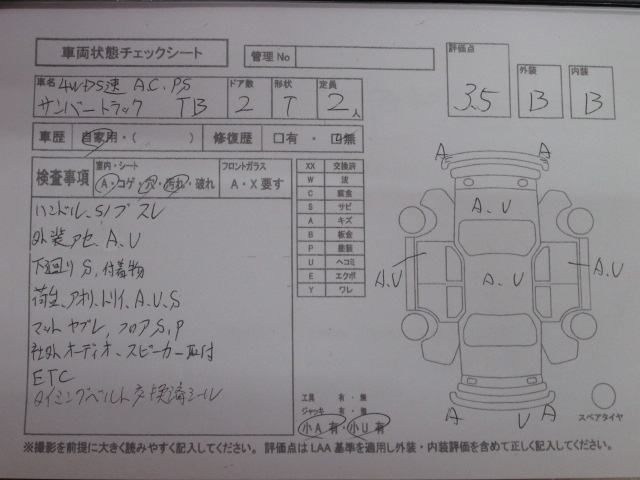 車両状態チェックシート
管理No
評価点
3.5
外装
B
内装
B
車名 4WD5速 AC,PS
サンバートラック TB
ドア数
2
形状
T
定員
2人
車歴 自家用・( ) 修復歴 □有・□無
検査事項
室内・シート
A・コゲ・穴・汚れ・破れ
フロントガラス
A・X要す
ハンドル、Sノブ スレ
外装アセ、A、U
下廻りS,付着物
荷台、アオリ、トリイ、A、U、S
マット ヤブレ,フロアS,P
社外オーディオ、スピーカー取付
ETC
タイミングベルト交換済シール
XX 交換済
W 波
C 腐食
S サビ
A キズ
B 板金
P 塗装
U ヘコミ
E エクボ
Y ワレ
工具 有・無
ジャッキ 有・無
小A有・小U有
A
A
A、U
A、U
A、U
A、U
A
U
A
スペアタイヤ
※撮影を前提に大きく読みやすく記入してください。評価点はLAA基準を適用し外装・内装評価を含めて正しく記入してください。